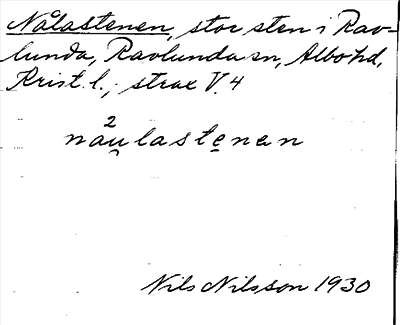 Nålastenen, stor sten i Rav-
lunda, Ravlunda sn, Albo hd,
Krist. l.; strax V. 4
2
nåu̯lastenen
Nils Nilsson 1930